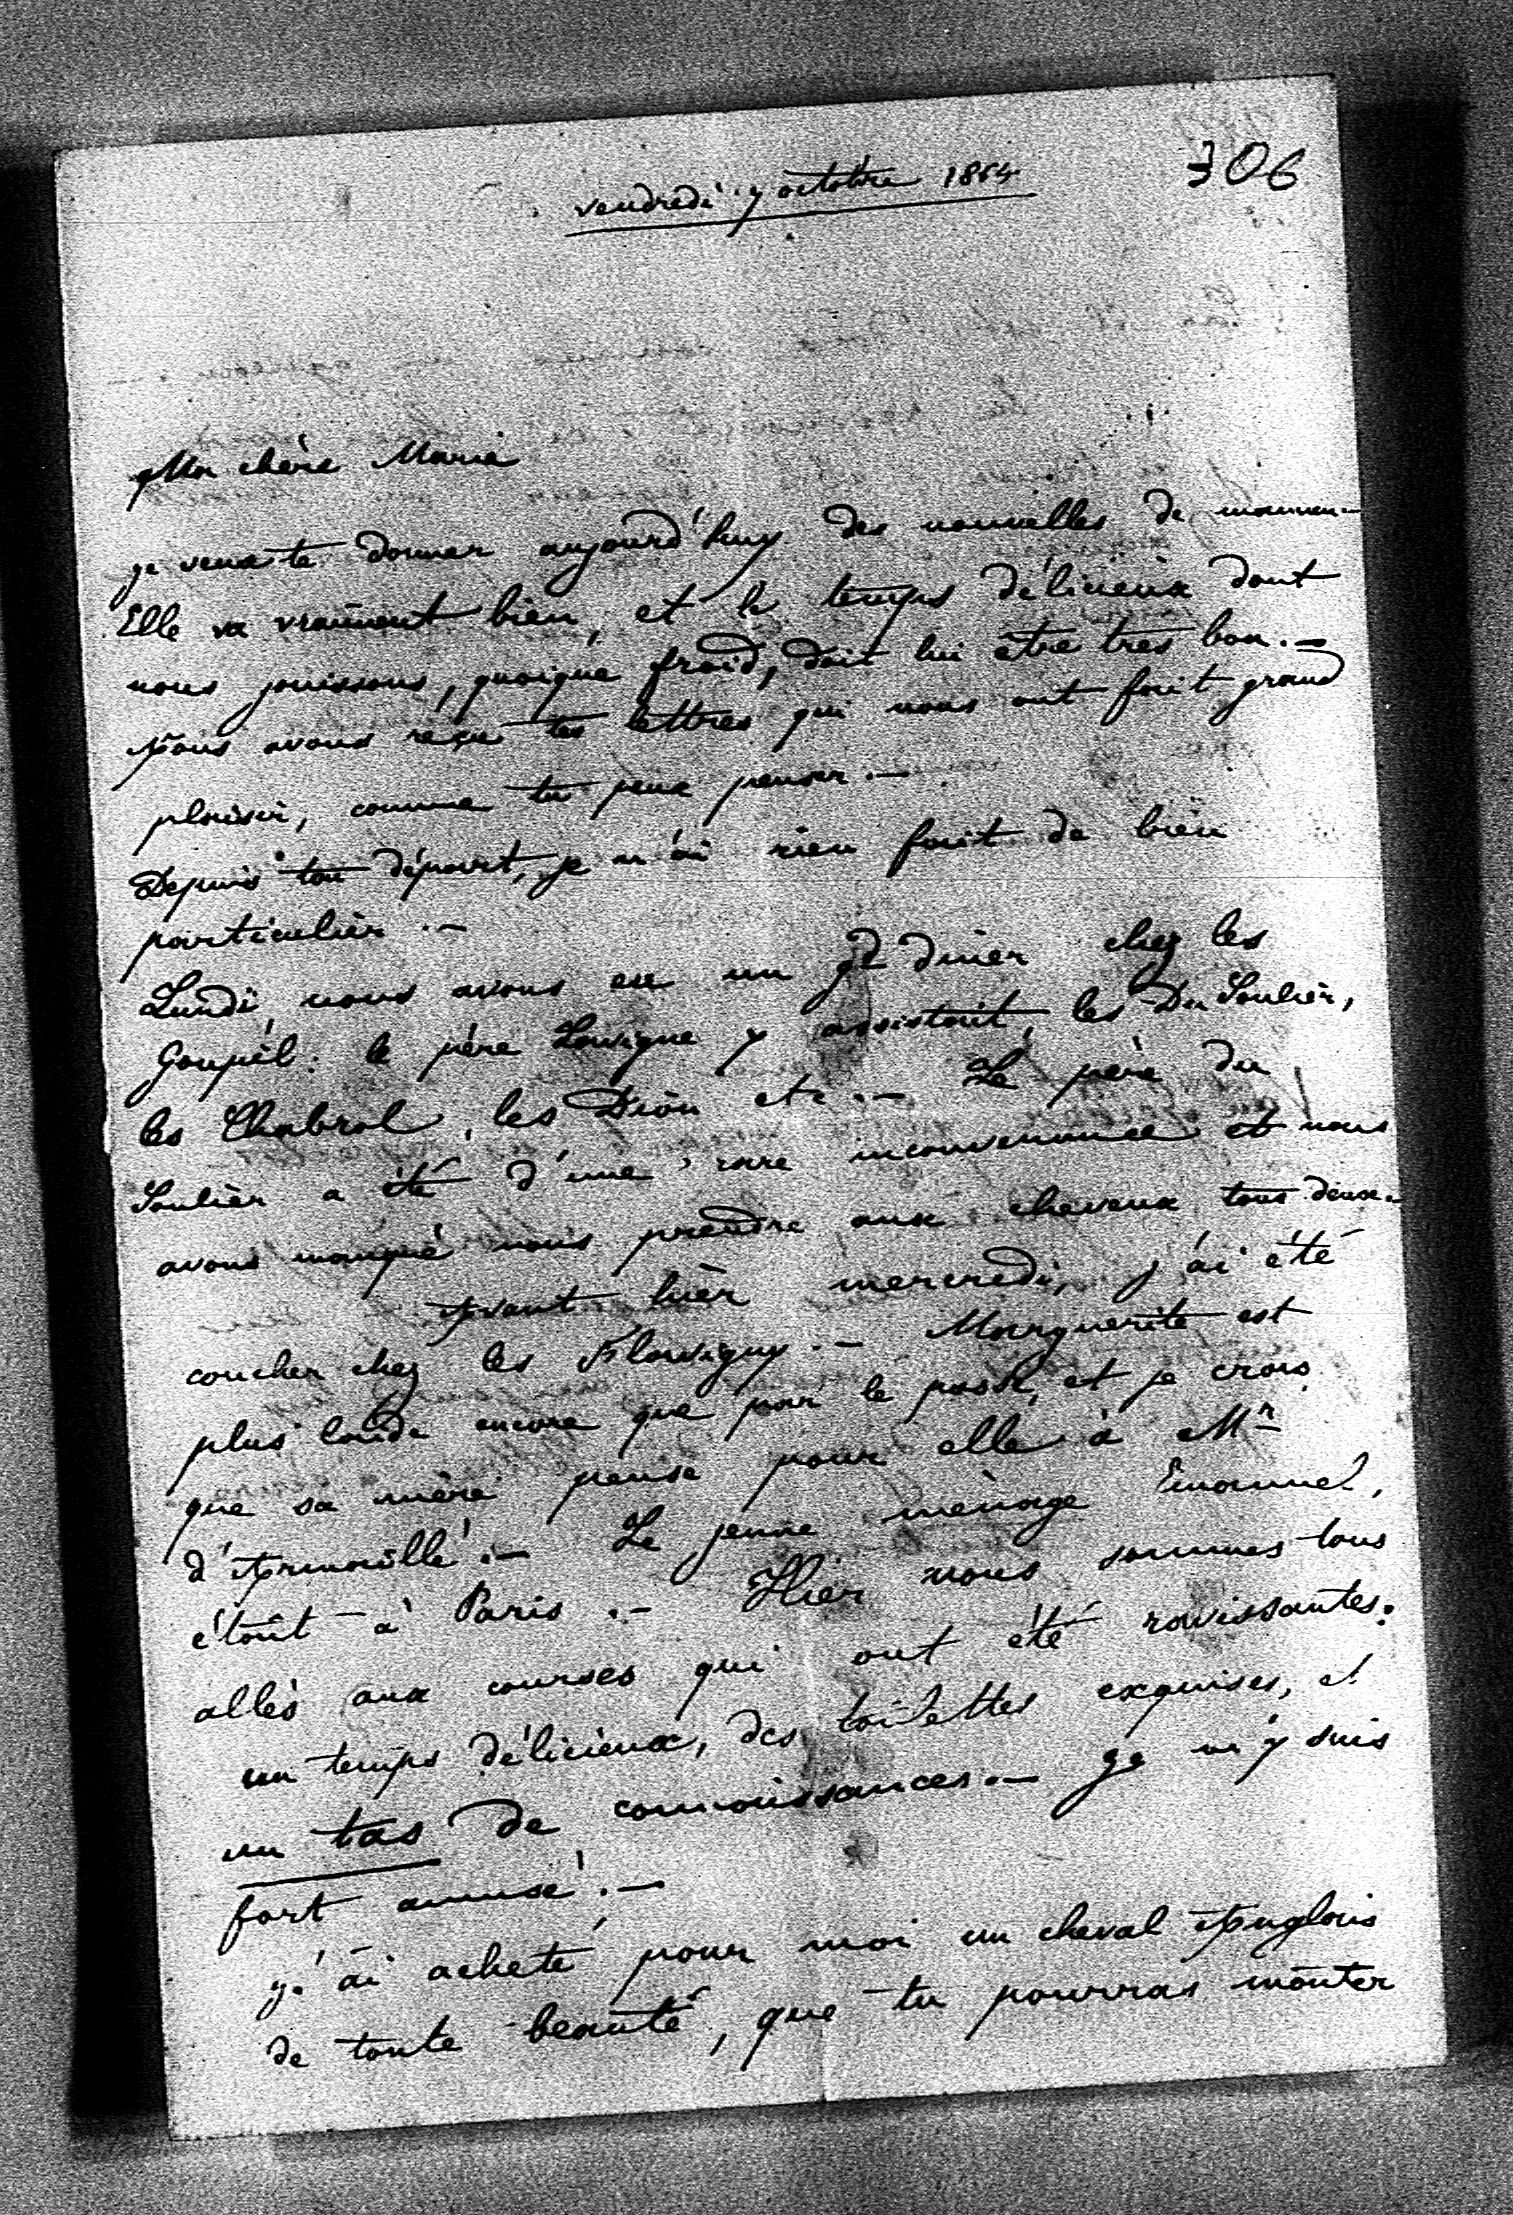 306
vendredi 7 octobre 1864
Ma chère Marie
je veux te donner aujourd'huy des nouvelles de maman.-
Elle va vraiment bien, et le temps délicieux dont
nous jouissons, quoique froid, doit lui être très bon.-
Nous avons reçu tes lettres qui nous ont fait grand
plaisir, comme tu peux penser.-
Depuis ton départ, je n'ai rien fait de bien
particulier.-
Lundi nous avons eu un gd diner chez les
Goupil: le père Lavigne y assistait, les Du Soulier,
les Chabrol, les Dion etc.- Le père du
Soulier a été d'une rare inconvenance et nous
avons manqué nous prendre aux cheveux tous deux.
Avant hier mercredi, j'ai été
coucher chez les Flavigny.- Marguerite est
plus laide encore que par le passé, et je crois
que sa mère pense pour elle à Mr
d'Armaillé.- Le jeune ménage Emanuel,
était à Paris.- Hier nous sommes tous
allés aux courses qui ont été ravissantes.
un temps délicieux, des toilettes exquises, et
un tas de connaissances.- Je m'y suis
fort amusé.-
J'ai acheté pour moi un cheval Anglais
de toute beauté, que tu pourras monter